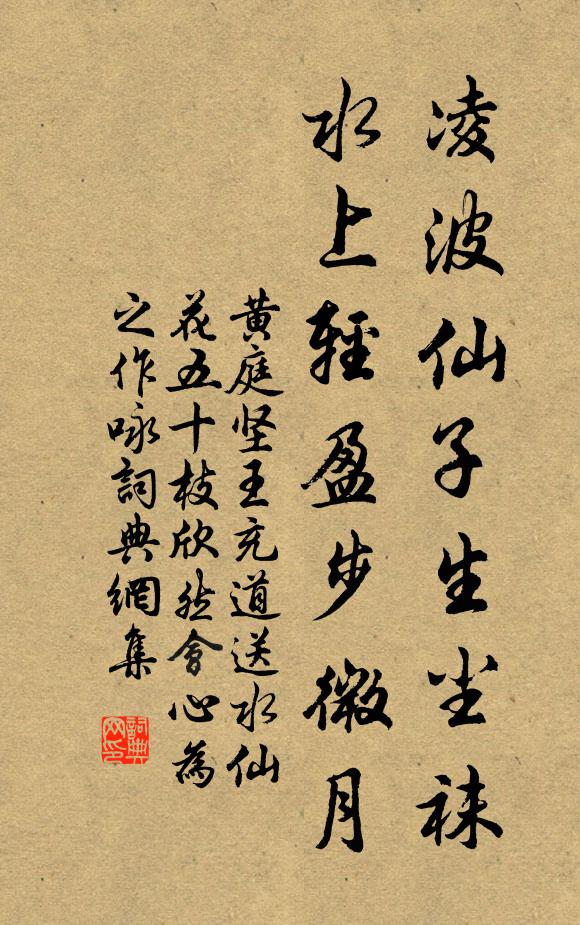 凌波仙子生尘袜
水上輕盈步微月
黄庭坚王充道送水仙
花五十枝欣然會心為
之作咏詞典網集
詞典网印